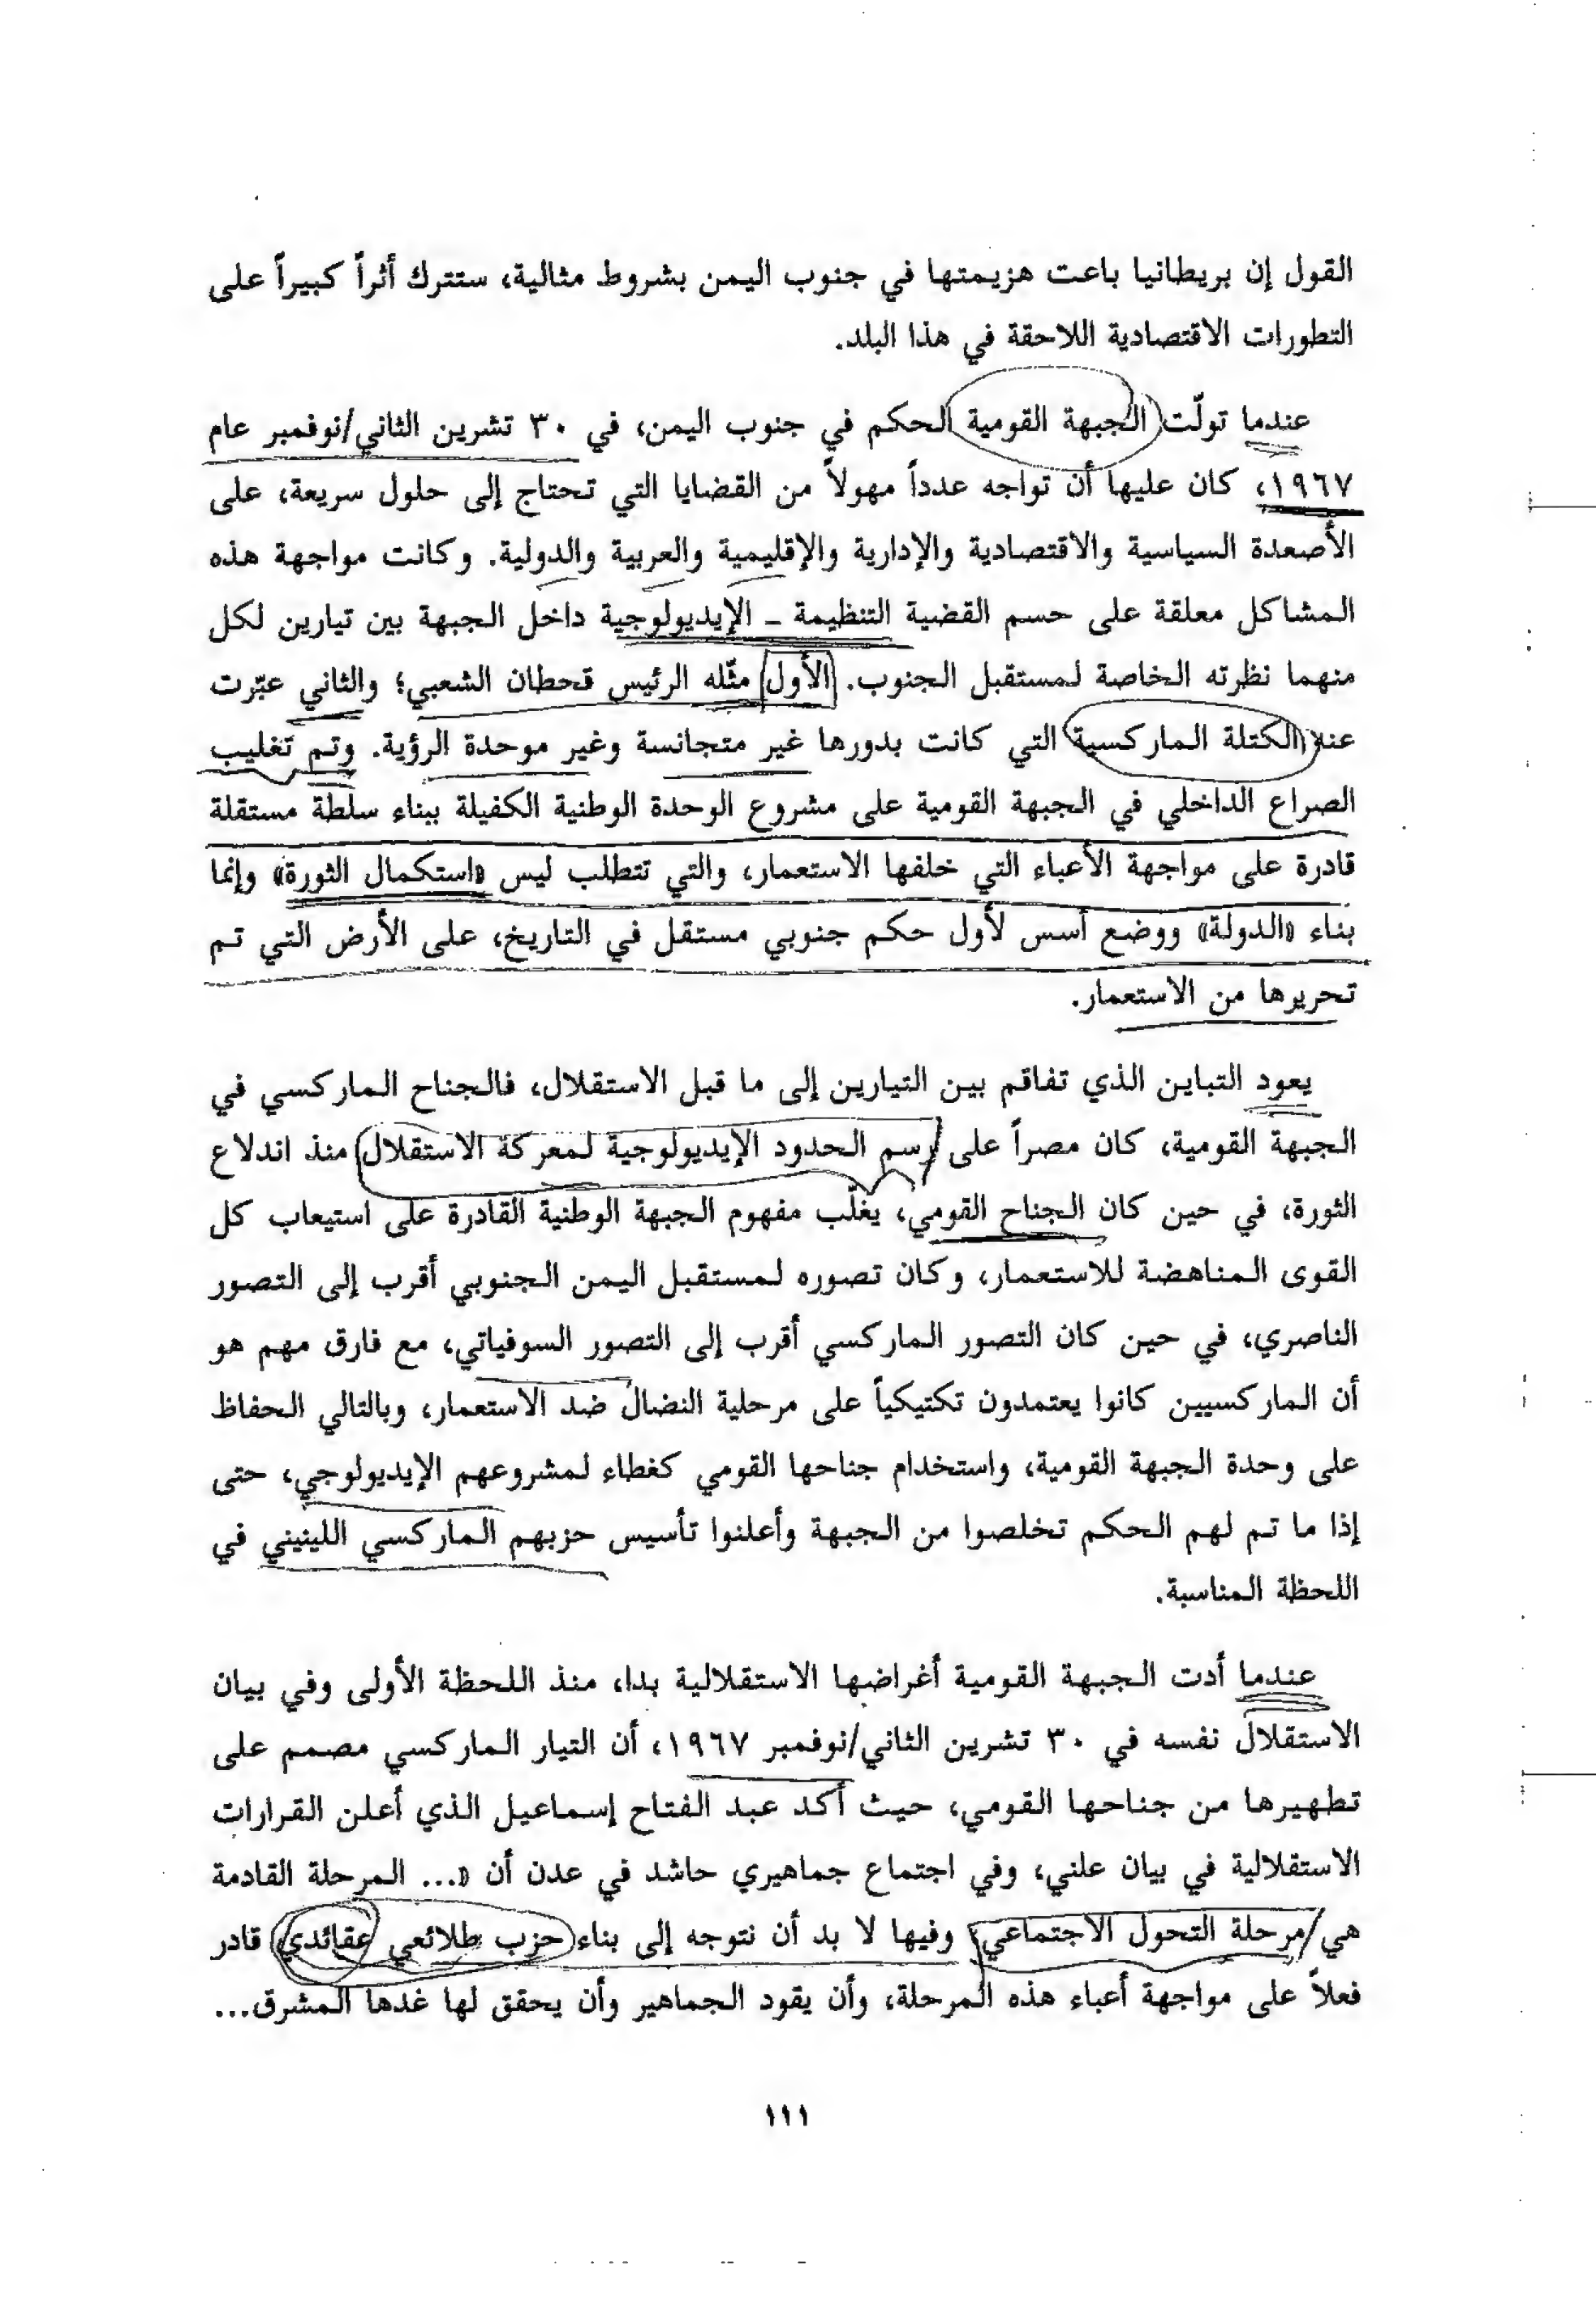 القول إن بريطانيا باعت هزيمتها في جنوب اليمن بشروط مثالية، ستترك أثراً كبيراً على
التطورات الاقتصادية اللاحقة في هذا البلد.
عندما تولّت الجبهة القومية الحكم في جنوب اليمن، في ٣٠ تشرين الثاني/نوفمبر عام
١٩٦٧، كان عليها أن تواجه عدداً مهولاً من القضايا التي تحتاج إلى حلول سريعة، على
الأصعدة السياسية والاقتصادية والإدارية والإقليمية والعربية والدولية. وكانت مواجهة هذه
المشاكل معلقة على حسم القضية التنظيمة ـ الإيديولوجية داخل الجبهة بين تيارين لكل
منهما نظرته الخاصة لمستقبل الجنوب. الأول مثّله الرئيس قحطان الشعبي؛ والثاني عبّرت
عنه الكتلة الماركسية التي كانت بدورها غير متجانسة وغير موحدة الرؤية. وتم تغليب
الصراع الداخلي في الجبهة القومية على مشروع الوحدة الوطنية الكفيلة ببناء سلطة مستقلة
قادرة على مواجهة الأعباء التي خلفها الاستعمار، والتي تتطلب ليس «استكمال الثورة» وإنما
بناء «الدولة» ووضع أسس لأول حكم جنوبي مستقل في التاريخ، على الأرض التي تم
تحريرها من الاستعمار.
يعود التباين الذي تفاقم بين التيارين إلى ما قبل الاستقلال، فالجناح الماركسي في
الجبهة القومية، كان مصراً على رسم الحدود الإيديولوجية لمعركة الاستقلال منذ اندلاع
الثورة، في حين كان الجناح القومي، يغلّب مفهوم الجبهة الوطنية القادرة على استيعاب كل
القوى المناهضة للاستعمار، وكان تصوره لمستقبل اليمن الجنوبي أقرب إلى التصور
الناصري، في حين كان التصور الماركسي أقرب إلى التصور السوفياتي، مع فارق مهم هو
أن الماركسيين كانوا يعتمدون تكتيكياً على مرحلية النضال ضد الاستعمار، وبالتالي الحفاظ
على وحدة الجبهة القومية، واستخدام جناحها القومي كغطاء لمشروعهم الإيديولوجي، حتى
إذا ما تم لهم الحكم تخلصوا من الجبهة وأعلنوا تأسيس حزبهم الماركسي اللينيني في
اللحظة المناسبة.
عندما أدت الجبهة القومية أغراضها الاستقلالية بدا، منذ اللحظة الأولى وفي بيان
الاستقلال نفسه في ٣٠ تشرين الثاني/نوفمبر ١٩٦٧، أن التيار الماركسي مصمم على
تطهيرها من جناحها القومي، حيث أكد عبد الفتاح إسماعيل الذي أعلن القرارات
الاستقلالية في بيان علني، وفي اجتماع جماهيري حاشد في عدن أن «... المرحلة القادمة
هي مرحلة التحول الاجتماعي، وفيها لا بد أن نتوجه إلى بناء حزب طلائعي عقائدي قادر
فعلاً على مواجهة أعباء هذه المرحلة، وأن يقود الجماهير وأن يحقق لها غدها المشرق...
١١١